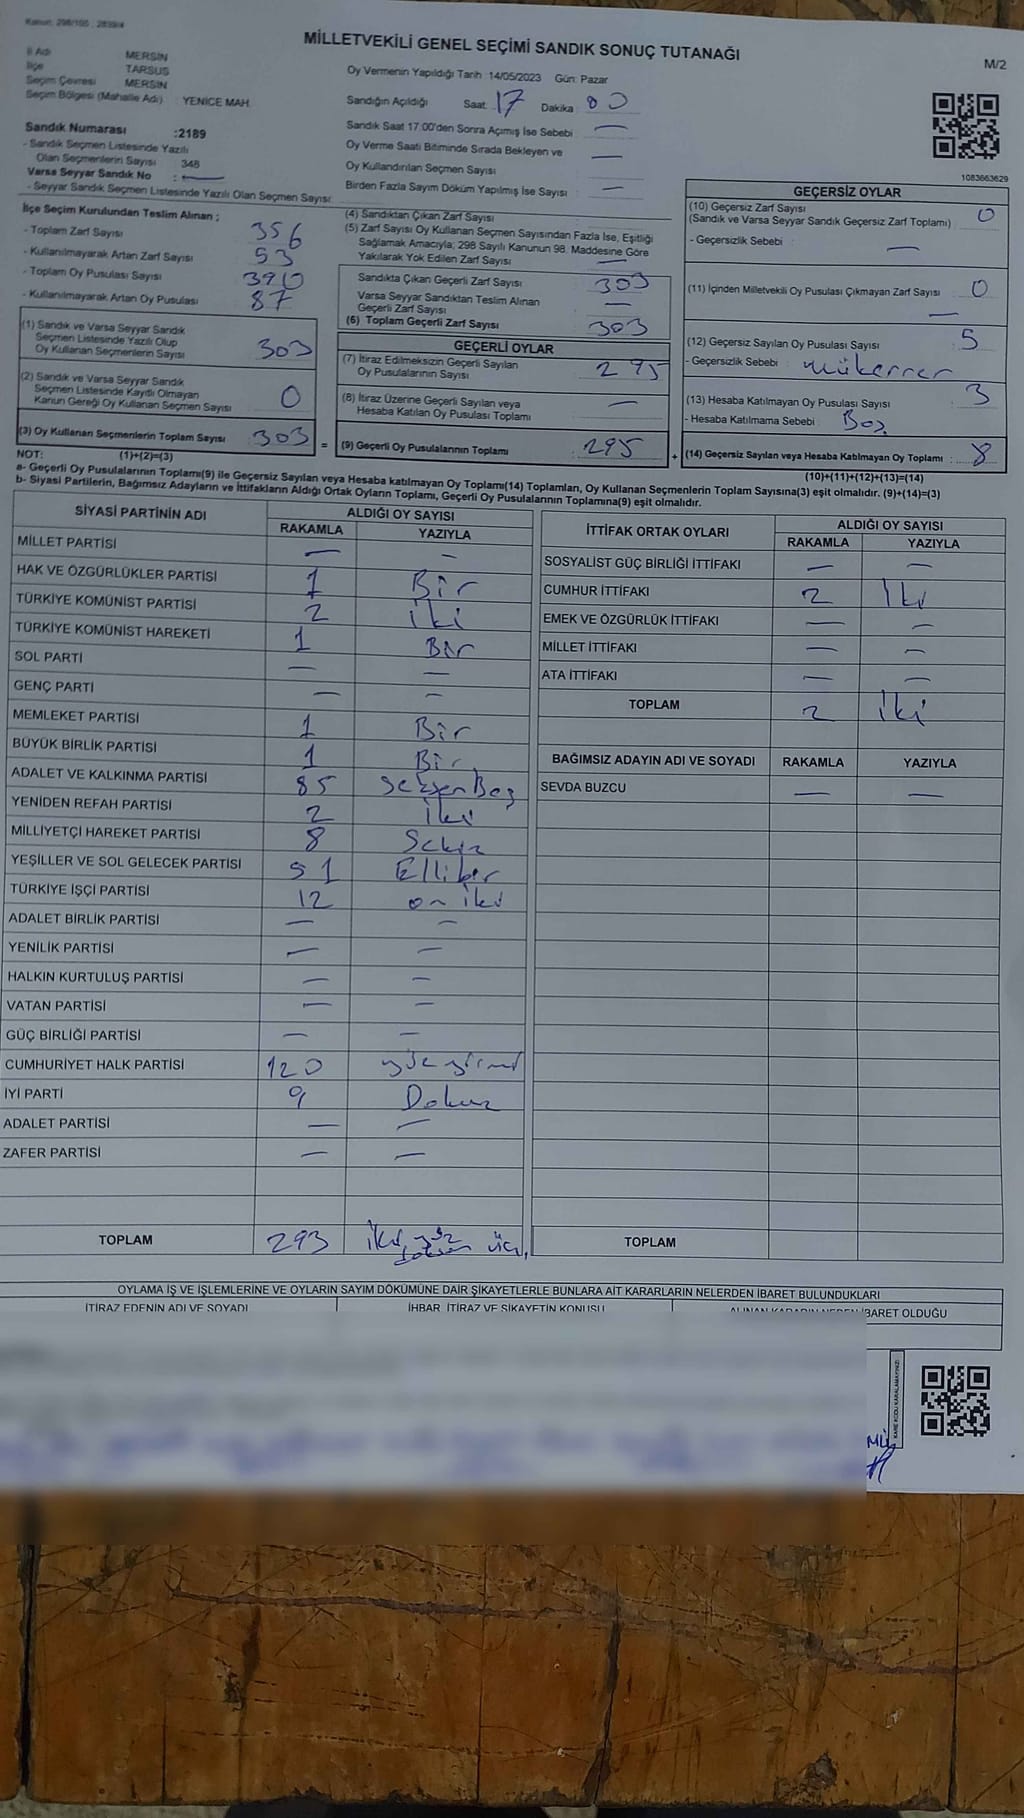 Kanun: 298/105 , 2839/4
MİLLETVEKİLİ GENEL SEÇİMİ SANDIK SONUÇ TUTANAĞI
M/2
İl Adı MERSİN
İlçe TARSUS
Seçim Çevresi MERSİN
Seçim Bölgesi (Mahalle Adı) : YENİCE MAH.
Oy Vermenin Yapıldığı Tarih :14/05/2023 Gün: Pazar
Sandığın Açıldığı Saat: 17 Dakika : 00
Sandık Saat 17:00'den Sonra Açımış İse Sebebi : —
Oy Verme Saati Bitiminde Sırada Bekleyen ve
Oy Kullandırılan Seçmen Sayısı : —
Birden Fazla Sayım Döküm Yapılmış İse Sayısı : —
Sandık Numarası :2189
- Sandık Seçmen Listesinde Yazılı
Olan Seçmenlerin Sayısı : 348
Varsa Seyyar Sandık No : —
- Seyyar Sandık Seçmen Listesinde Yazılı Olan Seçmen Sayısı:
1083663629
İlçe Seçim Kurulundan Teslim Alınan ;
- Toplam Zarf Sayısı 356
- Kullanılmayarak Artan Zarf Sayısı 53
- Toplam Oy Pusulası Sayısı 390
- Kullanılmayarak Artan Oy Pusulası 87
(1) Sandık ve Varsa Seyyar Sandık
Seçmen Listesinde Yazılı Olup
Oy Kullanan Seçmenlerin Sayısı 303
(2) Sandık ve Varsa Seyyar Sandık
Seçmen Listesinde Kayıtlı Olmayan
Kanun Gereği Oy Kullanan Seçmen Sayısı 0
(3) Oy Kullanan Seçmenlerin Toplam Sayısı 303 =
(4) Sandıktan Çıkan Zarf Sayısı
(5) Zarf Sayısı Oy Kullanan Seçmen Sayısından Fazla İse, Eşitliği
Sağlamak Amacıyla; 298 Sayılı Kanunun 98. Maddesine Göre
Yakılarak Yok Edilen Zarf Sayısı —
Sandıkta Çıkan Geçerli Zarf Sayısı 303
Varsa Seyyar Sandıktan Teslim Alınan
Geçerli Zarf Sayısı —
(6) Toplam Geçerli Zarf Sayısı 303
GEÇERLİ OYLAR
(7) İtiraz Edilmeksizin Geçerli Sayılan
Oy Pusulalarının Sayısı 295
(8) İtiraz Üzerine Geçerli Sayılan veya
Hesaba Katılan Oy Pusulası Toplamı —
(9) Geçerli Oy Pusulalarının Toplamı 295 +
GEÇERSİZ OYLAR
(10) Geçersiz Zarf Sayısı 0
(Sandık ve Varsa Seyyar Sandık Geçersiz Zarf Toplamı)
- Geçersizlik Sebebi : —
(11) İçinden Milletvekili Oy Pusulası Çıkmayan Zarf Sayısı 0
—
(12) Geçersiz Sayılan Oy Pusulası Sayısı 5
- Geçersizlik Sebebi : mükerrer
(13) Hesaba Katılmayan Oy Pusulası Sayısı 3
- Hesaba Katılmama Sebebi : Boş
(14) Geçersiz Sayılan veya Hesaba Katılmayan Oy Toplamı : 8
NOT: (1)+(2)=(3)
(10)+(11)+(12)+(13)=(14)
a- Geçerli Oy Pusulalarının Toplamı(9) ile Geçersiz Sayılan veya Hesaba katılmayan Oy Toplamı(14) Toplamları, Oy Kullanan Seçmenlerin Toplam Sayısına(3) eşit olmalıdır. (9)+(14)=(3)
b- Siyasi Partilerin, Bağımsız Adayların ve İttifakların Aldığı Ortak Oyların Toplamı, Geçerli Oy Pusulalarının Toplamına(9) eşit olmalıdır.
SİYASİ PARTİNİN ADI ALDIĞI OY SAYISI
RAKAMLA YAZIYLA
MİLLET PARTİSİ — —
HAK VE ÖZGÜRLÜKLER PARTİSİ 1 Bir
TÜRKİYE KOMÜNİST PARTİSİ 2 iki
TÜRKİYE KOMÜNİST HAREKETİ 1 Bir
SOL PARTİ — —
GENÇ PARTİ — —
MEMLEKET PARTİSİ 1 Bir
BÜYÜK BİRLİK PARTİSİ 1 Bir
ADALET VE KALKINMA PARTİSİ 85 SeksenBeş
YENİDEN REFAH PARTİSİ 2 iki
MİLLİYETÇİ HAREKET PARTİSİ 8 Sekiz
YEŞİLLER VE SOL GELECEK PARTİSİ 51 Ellibir
TÜRKİYE İŞÇİ PARTİSİ 12 on iki
ADALET BİRLİK PARTİSİ — —
YENİLİK PARTİSİ — —
HALKIN KURTULUŞ PARTİSİ — —
VATAN PARTİSİ — —
GÜÇ BİRLİĞİ PARTİSİ — —
CUMHURİYET HALK PARTİSİ 120 yüz yirmi
İYİ PARTİ 9 Dokuz
ADALET PARTİSİ — —
ZAFER PARTİSİ — —
TOPLAM 293 iki yüz doksan üç
İTTİFAK ORTAK OYLARI ALDIĞI OY SAYISI
RAKAMLA YAZIYLA
SOSYALİST GÜÇ BİRLİĞİ İTTİFAKI — —
CUMHUR İTTİFAKI 2 İki
EMEK VE ÖZGÜRLÜK İTTİFAKI — —
MİLLET İTTİFAKI — —
ATA İTTİFAKI — —
TOPLAM 2 iki
BAĞIMSIZ ADAYIN ADI VE SOYADI RAKAMLA YAZIYLA
SEVDA BUZCU — —
TOPLAM
OYLAMA İŞ VE İŞLEMLERİNE VE OYLARIN SAYIM DÖKÜMÜNE DAİR ŞİKAYETLERLE BUNLARA AİT KARARLARIN NELERDEN İBARET BULUNDUKLARI
İTİRAZ EDENİN ADI VE SOYADI İHBAR, İTİRAZ VE ŞİKAYETİN KONUSU ALINAN KARARIN NEDEN İBARET OLDUĞU
KARE KODU KARALAMAYINIZ!